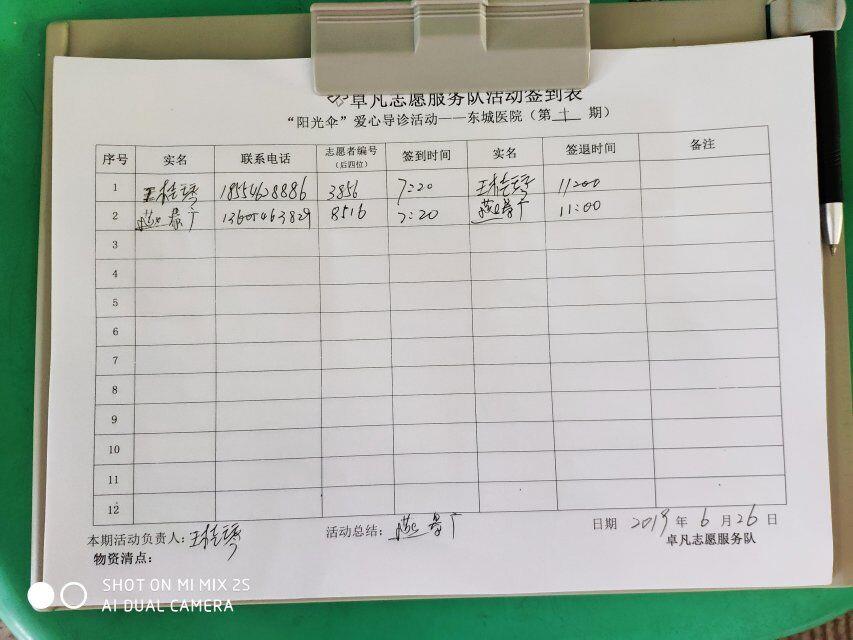 卓凡志愿服务队活动签到表
“阳光伞”爱心导诊活动——东城医院（第 十 期）
序号 实名 联系电话 志愿者编号（后四位） 签到时间 实名 签退时间 备注
1 王桂琴 18554628886 3856 7:20 王桂琴 11:00
2 燕景广 13605463829 8516 7:20 燕景广 11:00
3
4
5
6
7
8
9
10
11
12
本期活动负责人：王桂琴 活动总结：燕景广 日期 2019 年 6 月 26 日
物资清点： 卓凡志愿服务队
SHOT ON MI MIX 2S
AI DUAL CAMERA